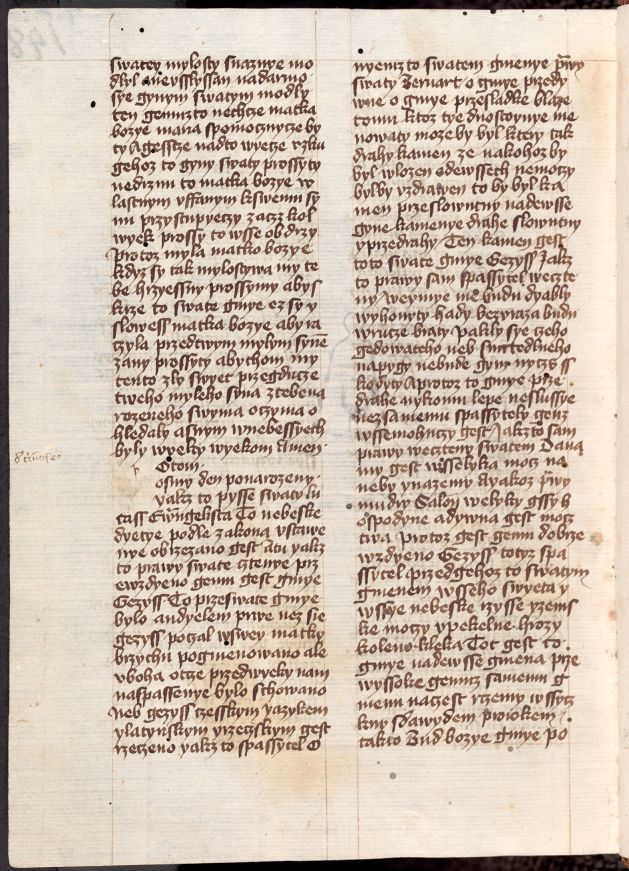 swatey mylosty snaznye mo
dlyl neysslyssan nadarmo
sye gynym swatym modly
ten gemuzto nechtze matka
bozye mana spomocznycze by
ty Agesstze nadto wyetze vzku
gehoz to gyny swaty prossyty
nedrzmi to matka bozye w
lastnym vffanym kswemu sy
nu przystupyeczy zaczz kol
wyek prossy to wsse obdrzy
Protoz myla matko bozye
kdyz sy tak mylostywa my te
be hrzyessny prossymy abys
skrze to swate gmye ez sy y
slowess matka bozye aby ra
czyla przedtwym mylym syne
zany prossyty abychom my
tento zly swyet przegducze
tweho myleho syna ztebena
rozeneho swyma oczyma o
hledaly asnym wnebessyech
byly wyeky wyekom Amen
Otom
osmy den ponarozeny
yakz to pysse swaty lu
kass Ewangelista To nebeske
dyetye podle zakona vstawe
nye obrzezano gest atu yakz
to prawy swate cztenye prz
ewzdyeno gemu gest gmye
Gezyss To przeswate gmye
bylo andyelem prwe nez sie
gezyss poczal wswey matky
brzychu pogmenowano ale
vboha otcze przedwyeky nam
naspassenye bylo schowano
neb gezyss czesskym yazykem
ylatynskym yrzeczskym gest
rzeczeno yakz to spassytel O
nyemz to swatem gmenye prwy
swaty Bernart o gmye przedy
wne o gmye przesladke blaze
tomu ktoz tye dnostoynye me
nowaty moze by byl ktery tak
drahy kamen ze nakohoz by
byl wlozen odewssech nemoczy
bylby vzdrawen to by byl ka
men przeslowutny nadewsse
gyne kamenye drahe slowutny
yprzedrahy Ten kamen gest
toto swate gmye Gezyss Jakz
to prawy sam spassytel weczte
ny weymye me budu dyably
wyhonyty hady bezvraza budu
wrucze braty Paklyt sye czeho
gedowateho neb smrtedlneho
napygy nebude gym nyczs ss
kodyty Aprotoz to gmye prze
drahe nykomu lepe neslussye
nezsamemu spassytely genz
wssemohuczy gest Jakzto sam
prawy weczteny swatem Dana
my gest wsselyka mocz na
neby ynazemy Ayakoz prwy
mudry Salon welyky gssy h
ospodyne adywna gest mocz
twa Protoz gest gemu dobrze
wzdyeno Gezyss totyz spa
ssytel przedgehoz to swatym
gmenem wsseho swyeta y
wssye nebeske rzysse yzems
ke moczy ypekelne hrozy
koleno kleka Tot gest to
gmye nadewsse gmena prze
wyssoke gemuz samemu g
menu naczest rzemy wssycz
kny sdawydem prorokem
takto Bud bozye gmye po